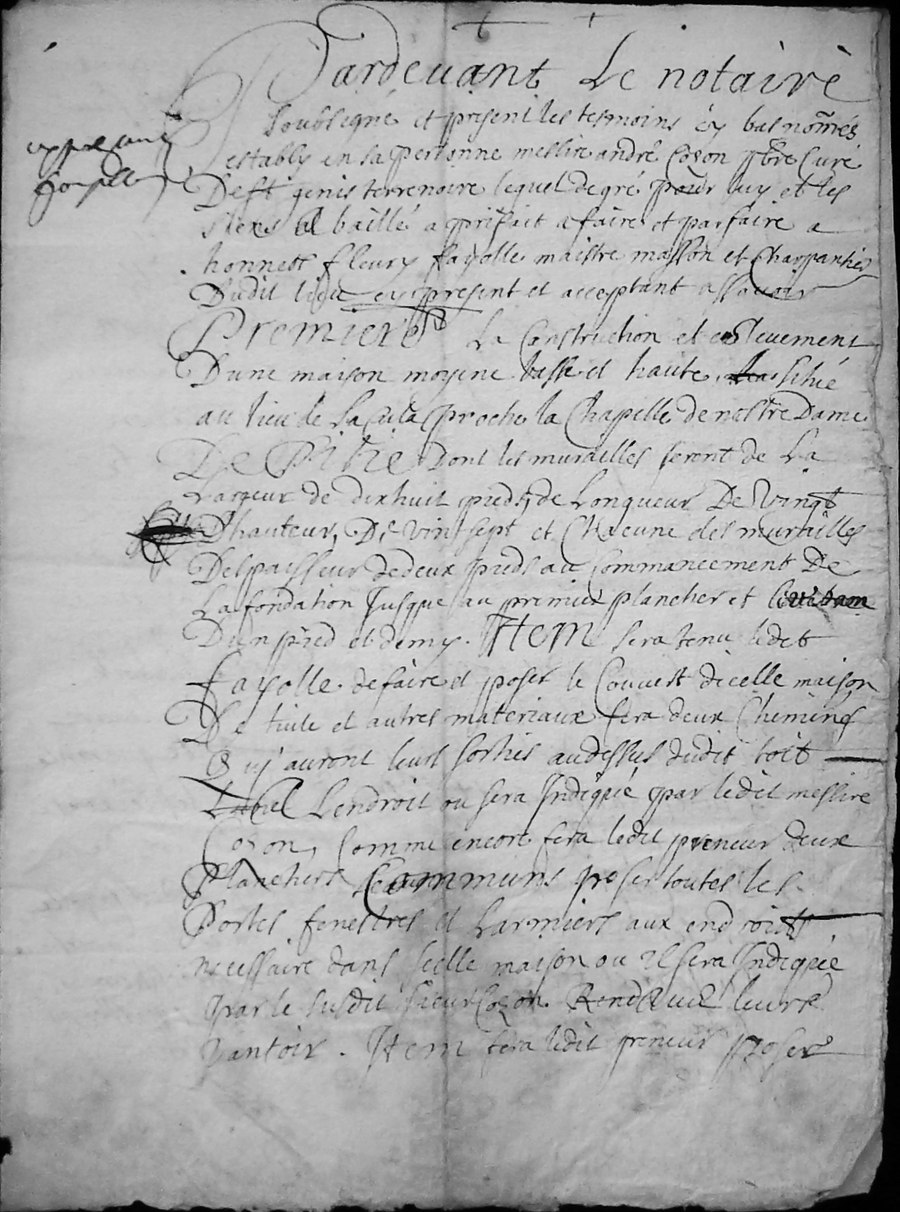 Pardevant Le notaire
soubsigné et presents les tesmoins cy bas nom̃és
estably en sa personne messire andré Cozon pbre Curé
De st genis terrenoire lequel de gré pour luy et les
siens a baillé a prifait a faire et parfaire a
honneste fleury fayolle maistre masson et Charpantier
Dudit lieu cy present et acceptant assavoir
Premiere La Construction et eslevement
Dune maison moyene basse et haute situé
au lieu de La proche la Chapelle de nostre Dame
De Pitié Dont les murailles seront de La
Largeur de dixhuit pieds, de Longueur De Vingt
Dhauteur, De vintsept et Chacune des murailles
Despaisseur de deux pieds au Commancement De
La fondation Jusque au premier plancher et
Dun pied et demy. Item sera tenu ledit
fayolle de faire et poser le Couvert dicelle maison
De tiule et autres materiaux fera deux Cheminés
Quy auront leurs sorties audessus dudit toit
Lendroit ou sera Indiqué par ledit messire
Cozon, Comme encore fera ledit preneur deux
Planchers Communs poser toutes les
Portes fenestres et Larmiers aux endroits
necessaire dans icelle maison ou il sera Indiquée
par le susdit sieur Cozon.
Item fera ledit preneur poser